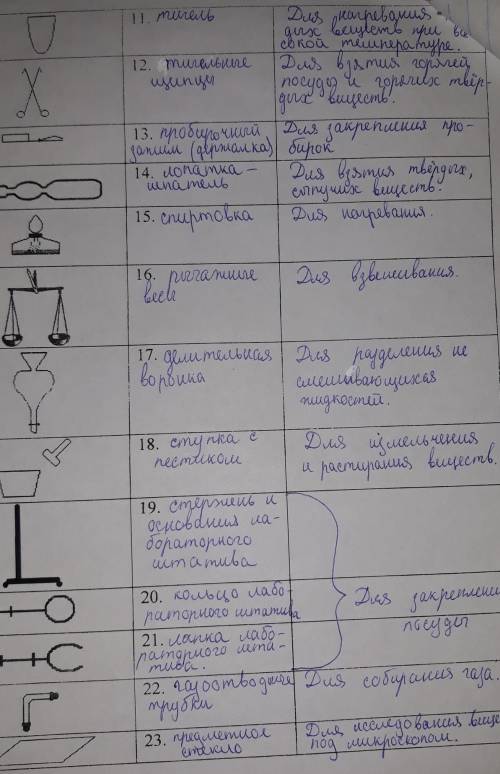 11. тигель
Для нагревания
дых веществ при вы
сокой температуре.
12. тигельные
щипцы
Для взятия горячей
посуды и горячих твёр-
дых виществ.
13. пробирочный
зажим (держалка)
Для закрепления про-
бирок
14. лопатка –
шпатель
Для взятия твёрдых,
сыпучих виществ.
15. спиртовка
Для нагревания.
16. рычажные
весы
Для взвешивания.
17. делительная
воронка
Для разделения не
смешивающихся
жидкостей.
18. ступка с
пестиком
Для измельчения
и растирания веществ.
19. стержень и
основания ла-
бораторного
штатива
20. кольцо лабо-
раторного штатива
21. лапка лабо-
раторного шта-
тива.
Для закреплени
посуды
22. газоотводные
трубки
Для собирания газа.
23. предметное
стекло
Для исследования вище
под микроскопом.